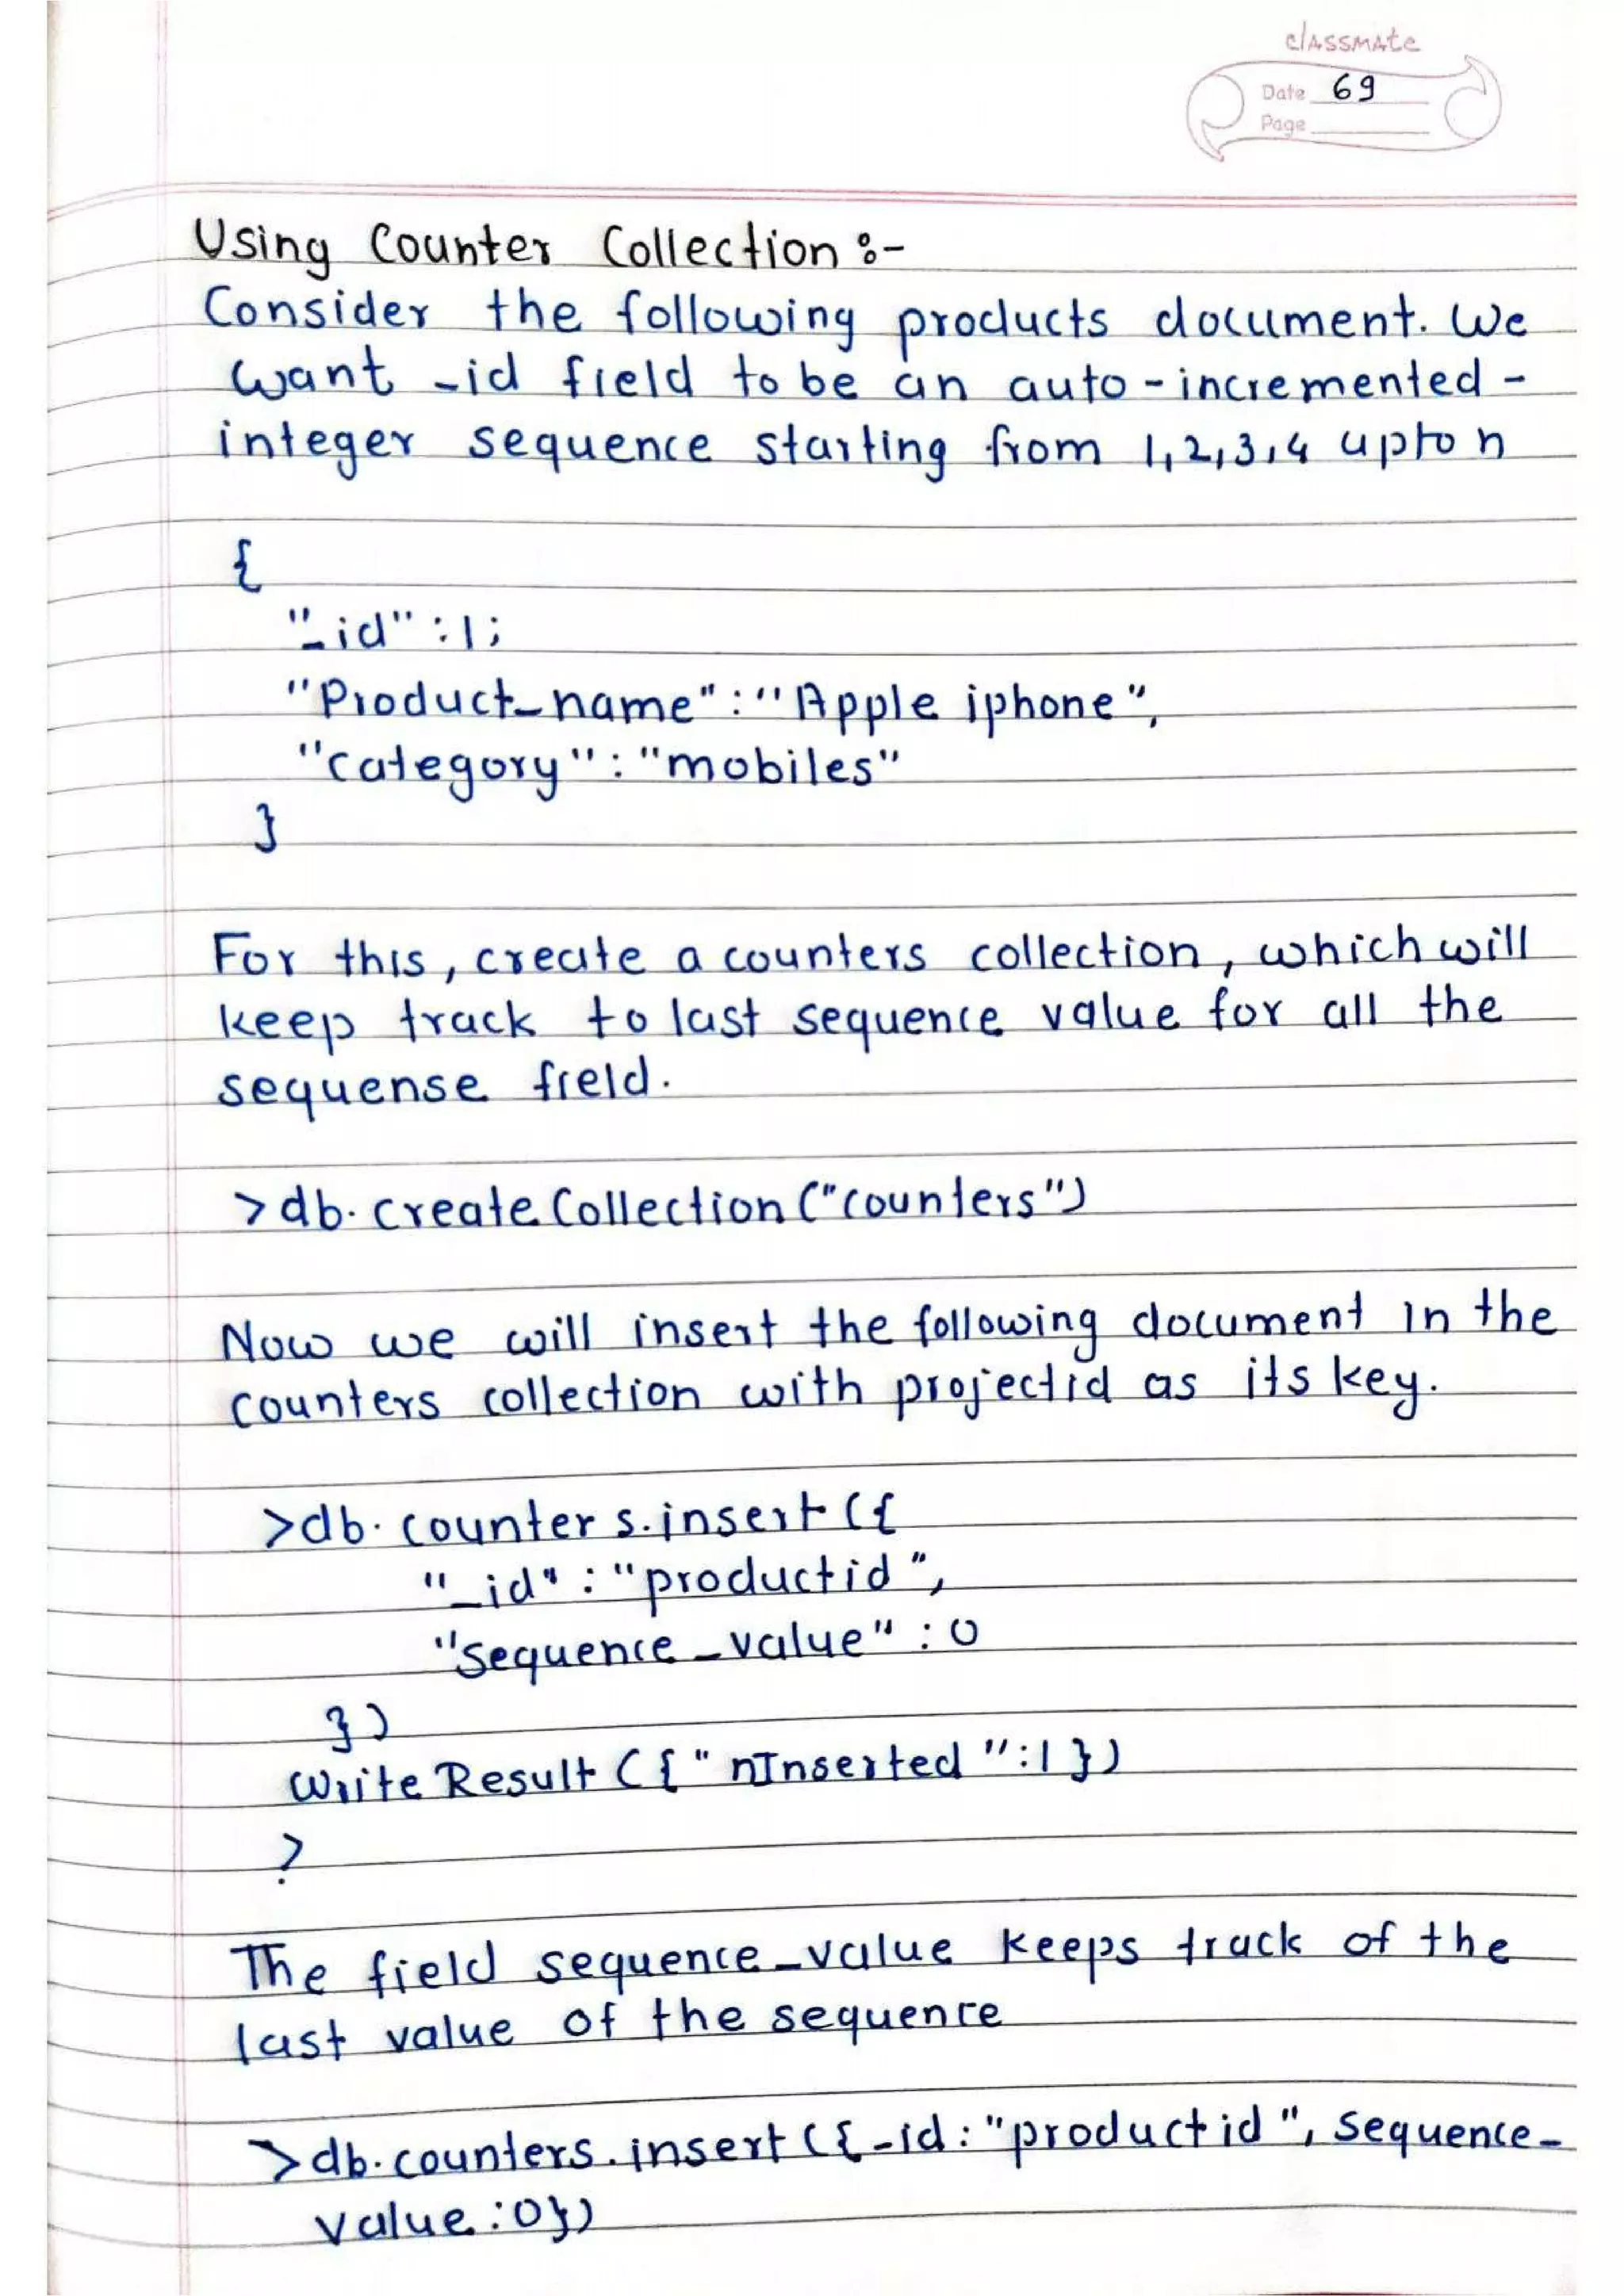 classmate
Date 69
Page
Using Counter Collection :-
Consider the following products document. We
want _id field to be an auto-incremented-
integer sequence starting from 1,2,3,4 upto n
{
"_id" : 1;
"Product_name" : "Apple iphone",
"category" : "mobiles"
}
For this, create a counters collection, which will
keep track to last sequence value for all the
sequense field.
>db.createCollection("counters")
Now we will insert the following document in the
counters collection with projectid as its key.
>db.counters.insert({
"_id" : "productid",
"sequence_value" : 0
})
WriteResult({"nInserted":1})
?
The field sequence_value keeps track of the
last value of the sequence
>db.counters.insert({_id:"productid", sequence_
value:0})